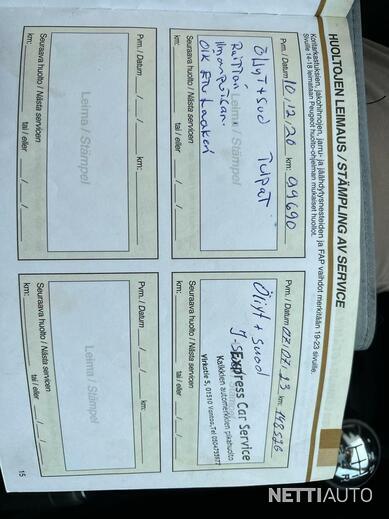 HUOLTOJEN LEIMAUS / STÄMPLING AV SERVICE
Koritarkastuksien, jakohihnojen, jarru- ja jäähdytysnesteiden ja FAP vaihdot merkitään 19-23 sivuille.
Sivuille 14-18 leimataan Peugeot huolto-ohjelman mukaiset huollot.
Pvm. / Datum 10.12.20 km: 99690
Leima / Stämpel
Öljyt + suod Tulpat
Raitis
Seuraava huolto / Nästa servicen
km: tai / eller / /
Pvm. / Datum 07/07/23 km: 148526
Öljyt + Suod
J-S
Express Car Service
Kaikkien automerkkien pikahuolto
Virkatie 5, 01510 Vantaa, Tel 0504753977
Seuraava huolto / Nästa servicen
km: tai / eller / /
Pvm. / Datum / / km:
Leima / Stämpel
Seuraava huolto / Nästa servicen
km: tai / eller / /
Pvm. / Datum / / km:
Leima / Stämpel
Seuraava huolto / Nästa servicen
km: tai / eller / /
15
NETTIAUTO